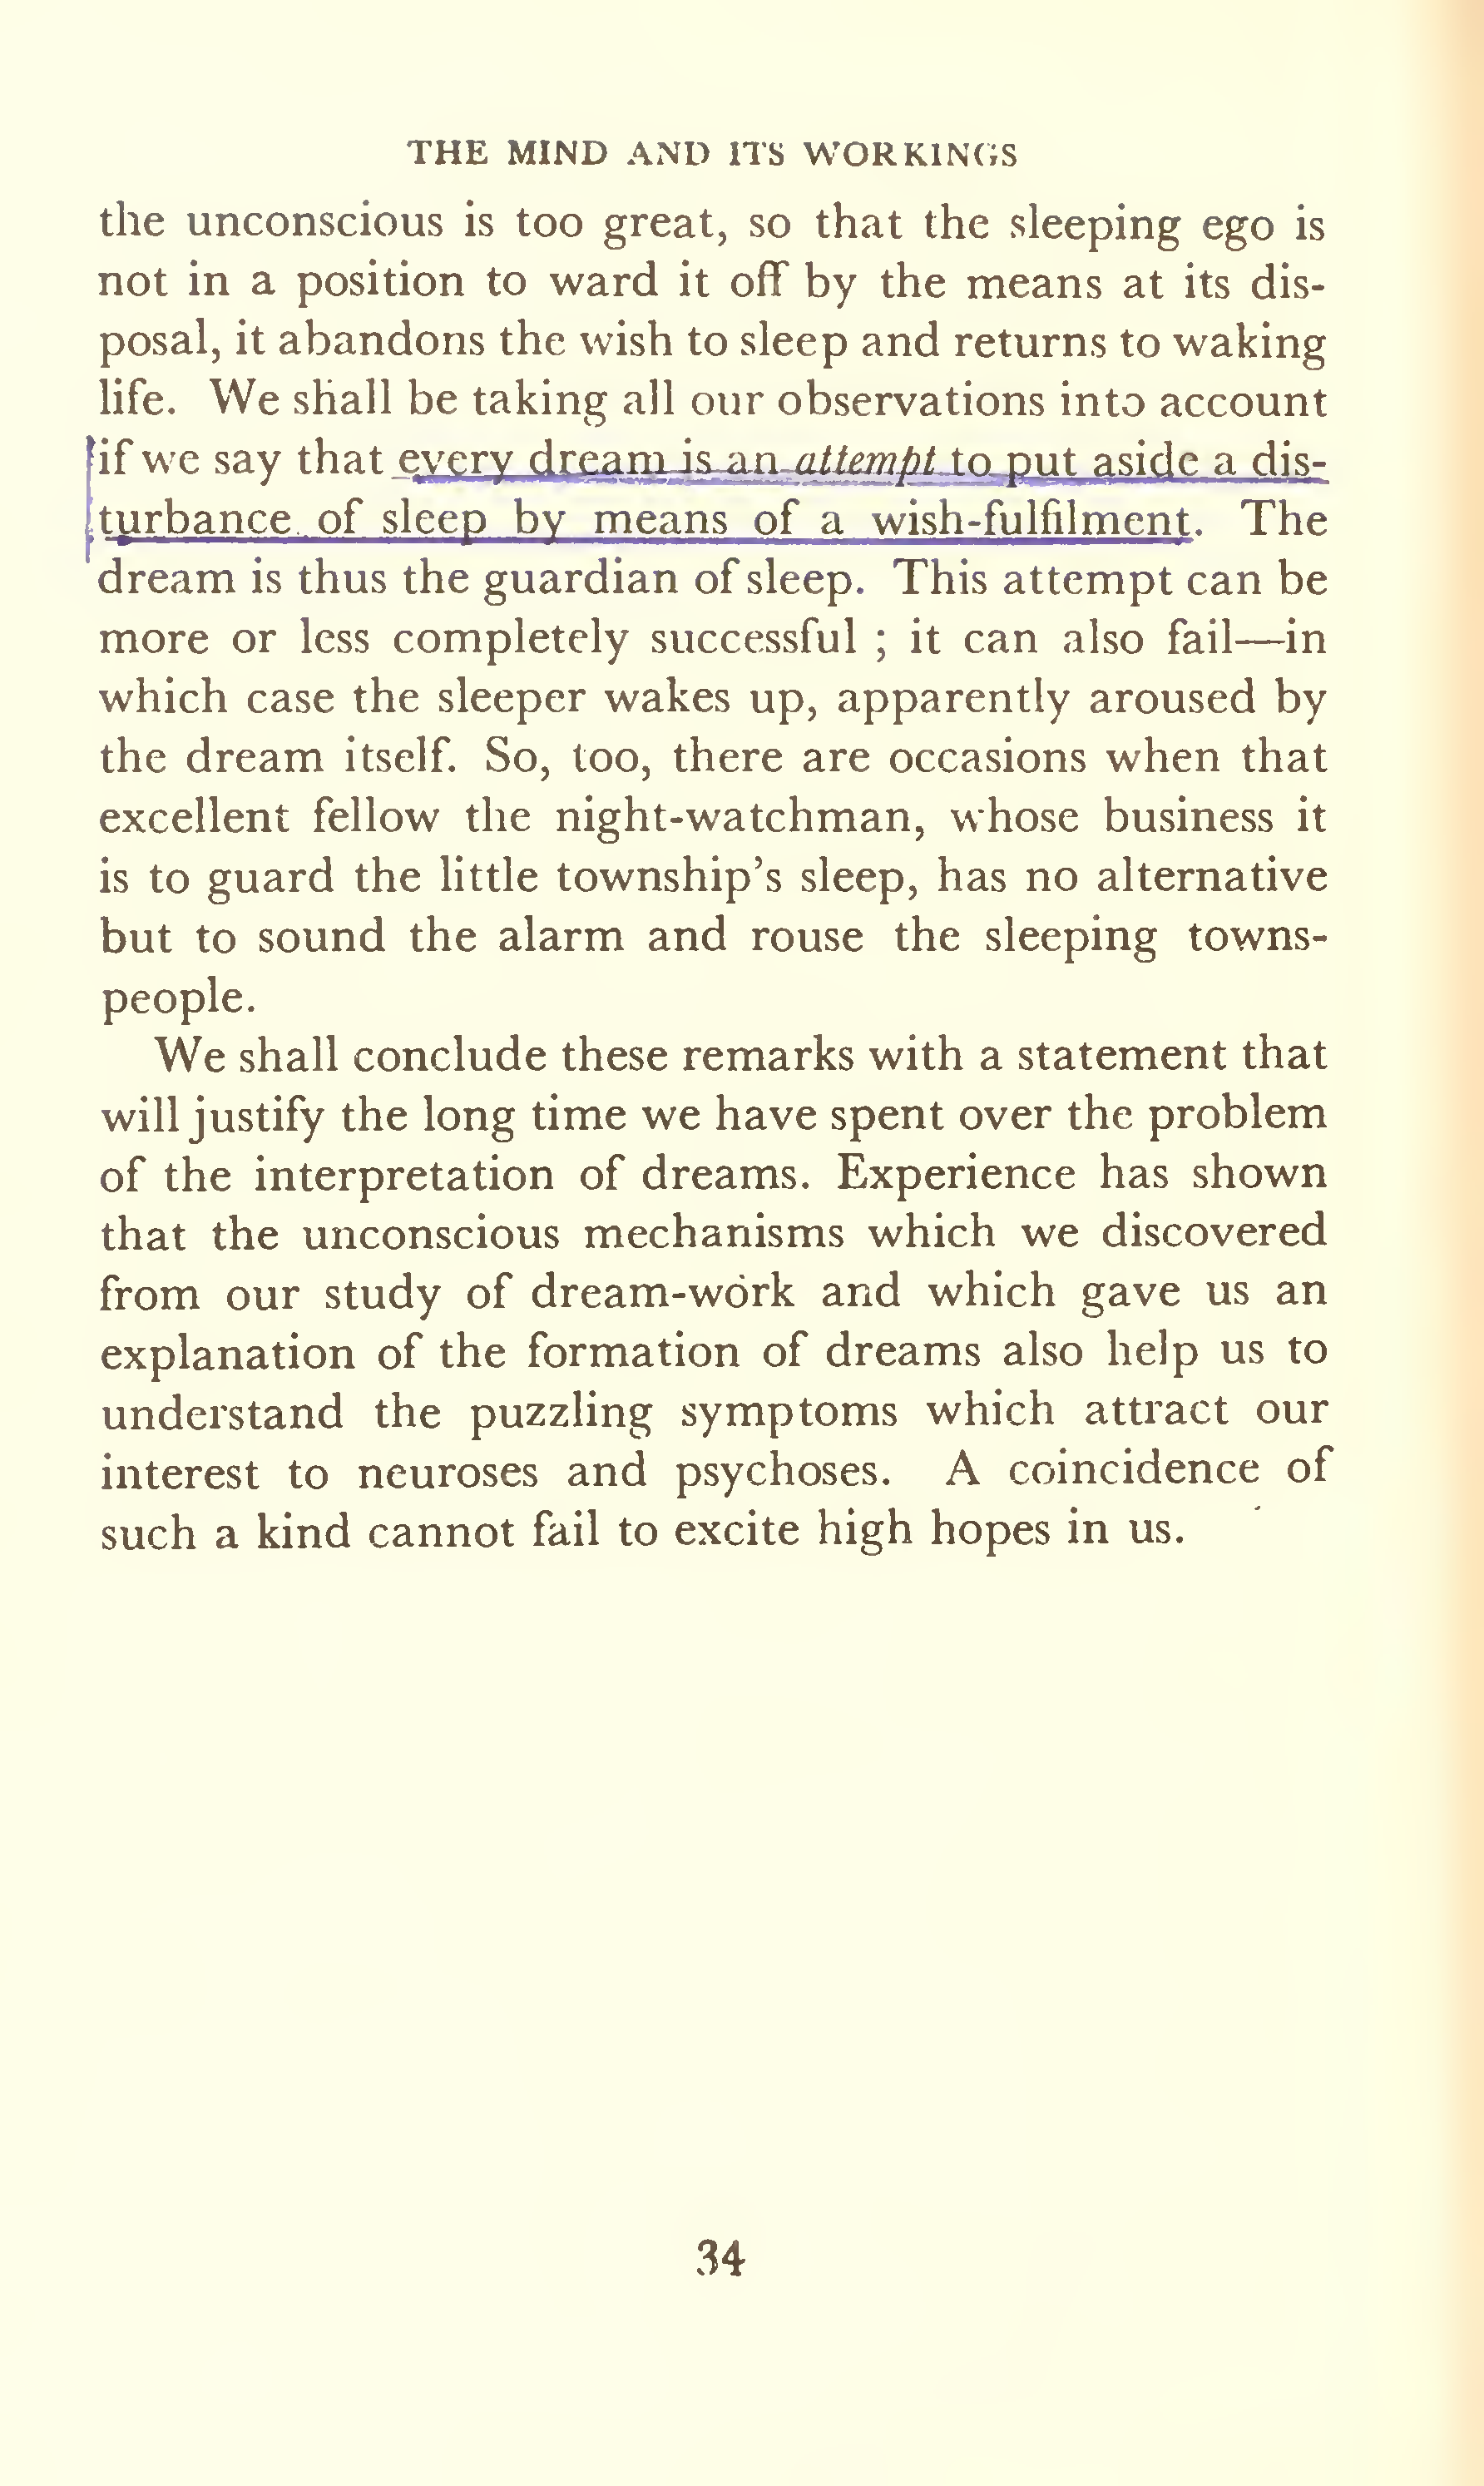 THE MIND AND ITS WORKINGS
the unconscious is too great, so that the sleeping ego is
not in a position to ward it off by the means at its dis-
posal, it abandons the wish to sleep and returns to waking
life. We shall be taking all our observations into account
if we say that every dream is an attempt to put aside a dis-
turbance of sleep by means of a wish-fulfilment. The
dream is thus the guardian of sleep. This attempt can be
more or less completely successful ; it can also fail—in
which case the sleeper wakes up, apparently aroused by
the dream itself. So, too, there are occasions when that
excellent fellow the night-watchman, whose business it
is to guard the little township's sleep, has no alternative
but to sound the alarm and rouse the sleeping towns-
people.
We shall conclude these remarks with a statement that
will justify the long time we have spent over the problem
of the interpretation of dreams. Experience has shown
that the unconscious mechanisms which we discovered
from our study of dream-work and which gave us an
explanation of the formation of dreams also help us to
understand the puzzling symptoms which attract our
interest to neuroses and psychoses. A coincidence of
such a kind cannot fail to excite high hopes in us.
34